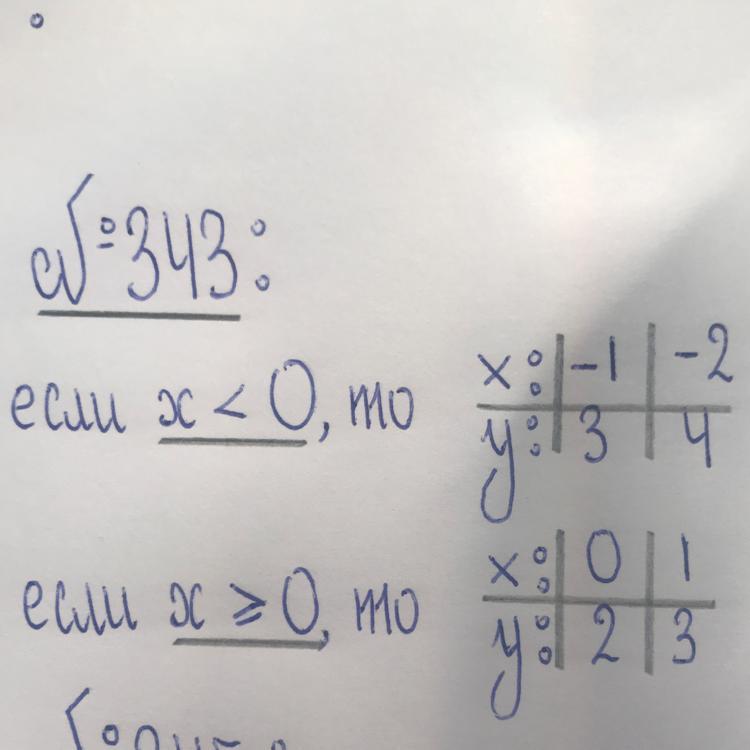 №343:
если x < 0, то
x: -1 -2
y: 3 4
если x ⩾ 0, то
x: 0 1
y: 2 3